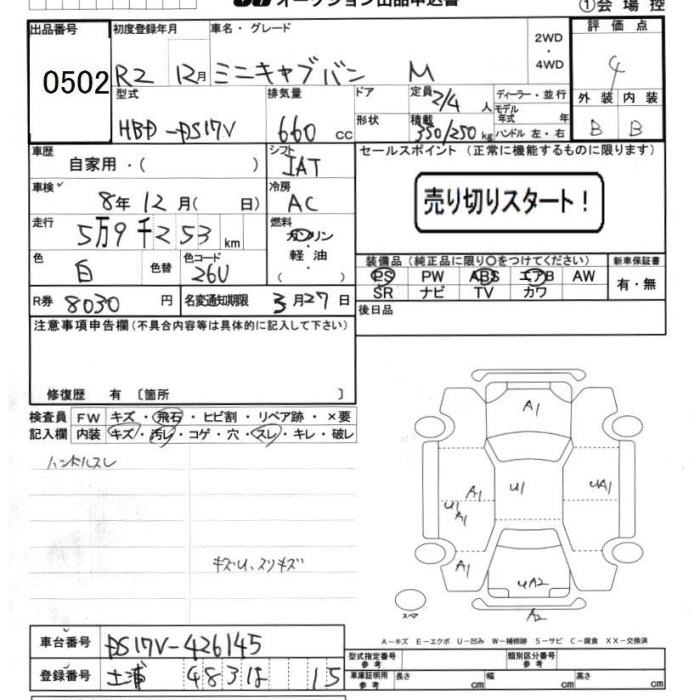 オークション出品申込書 ①会場控
出品番号 初度登録年月 車名・グレード 評価点
0502 R2 12月 ミニキャブバン M 2WD ・ 4WD 4
型式 排気量 ドア 定員 2/4人 ディーラー・並行 外装 内装
HBD-DS17V 660cc 形状 積載 350/250kg モデル年式 年 ハンドル 左・右 B B
車歴 自家用・( ) シフト IAT セールスポイント (正常に機能するものに限ります)
車検 8年12月( 日) 冷房 AC 売り切りスタート!
走行 5万9千253km 燃料 ガソリン・軽油・( )
色 白 色替 色コード 26U 装備品 (純正品に限り○をつけてください) 新車保証書
PS PW ABS エアB AW 有・無
SR ナビ TV カワ
R券 8030円 名変通知期限 3月27日 後日品
注意事項申告欄(不具合内容等は具体的に記入して下さい)
修復歴 有 〔箇所 〕
検査員 FW キズ・飛石・ヒビ割・リペア跡・×要
記入欄 内装 キズ・汚レ・コゲ・穴・スレ・キレ・破レ
ハンドルスレ
キズU、スリキズ
A1
A1 U1 A1 U1 UA1
A1 UA2
スペア A2
A-キズ E-エクボ U-凹み W-補修跡 S-サビ C-腐食 XX-交換済
車台番号 DS17V-426145 型式指定番号 参考 類別区分番号 参考
登録番号 土浦 483 は 15 車庫証明用 参考 長さ cm 幅 cm 高さ cm